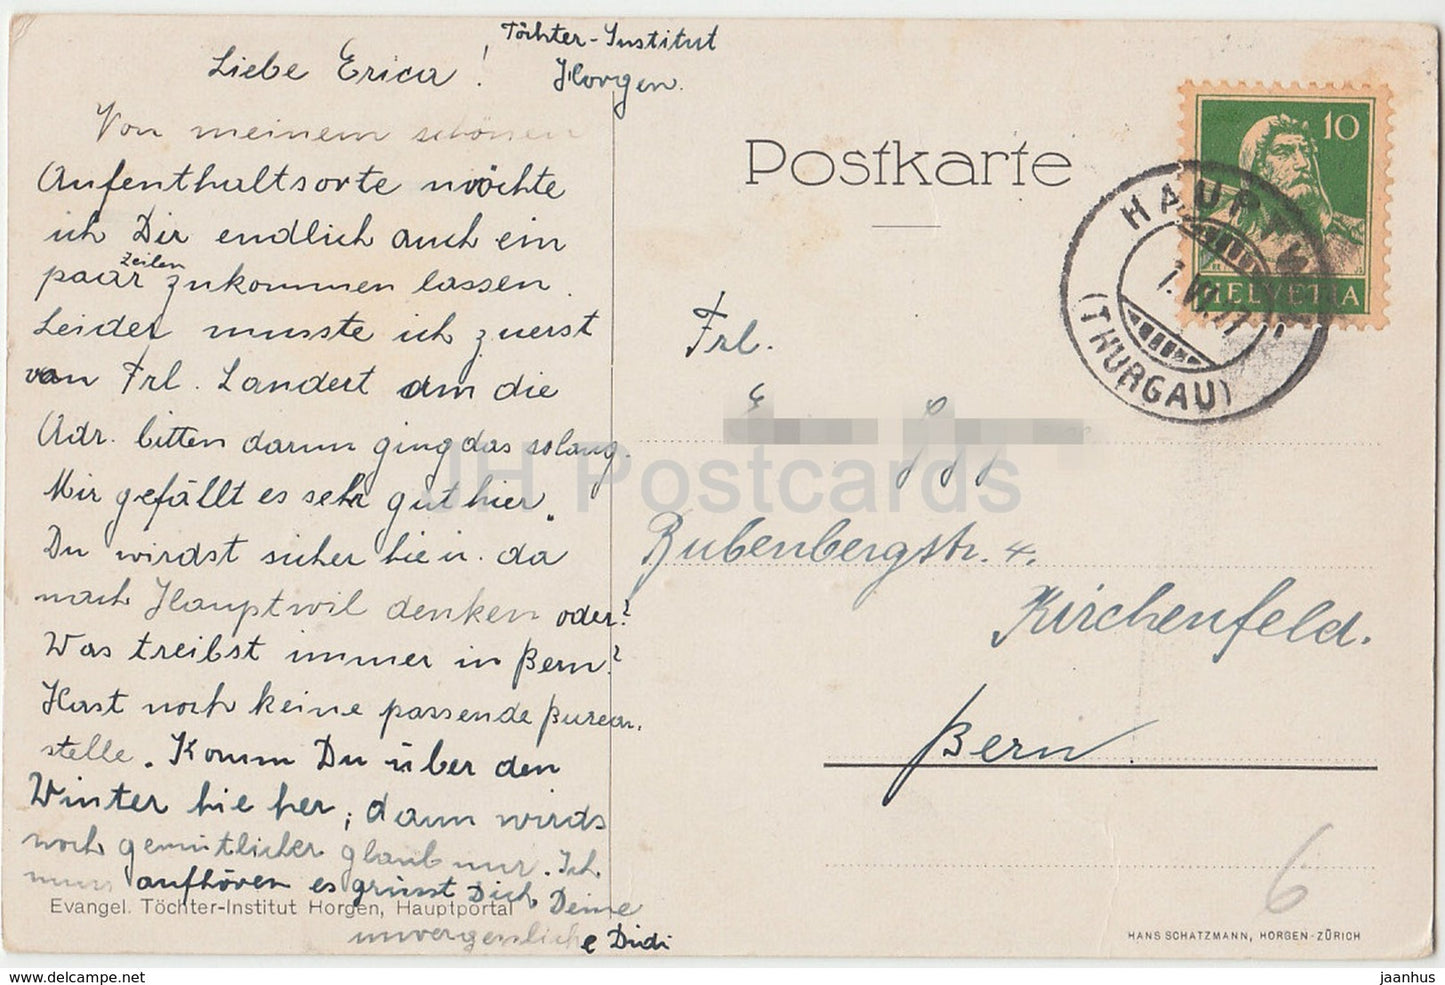 Töchter-Institut
Horgen.
Liebe Erica!
Von meinem schönen
Aufenthaltsorte möchte
ich Dir endlich auch ein
paar Zeilen zukommen lassen.
Leider musste ich zuerst
von Frl. Landert um die
Adr. bitten darum ging das so lang.
Mir gefällt es sehr gut hier.
Du wirdst sicher hie u. da
nach Hauptwil denken oder?
Was treibst immer in Bern?
Hast noch keine passende Bureau.
stelle. Komm Du über den
Winter hie her, dann wirds
noch gemütlicher glaub nur. Ich
muss aufhören es grüsst Dich Deine
unvergessliche Dudi
Evangel. Töchter-Institut Horgen, Hauptportal
Postkarte
10
HELVETIA
HAUPTWIL
(THURGAU)
Frl.
Bubenbergstr. 4.
Kirchenfeld.
Bern
6
HANS SCHATZMANN, HORGEN-ZÜRICH
JH Postcards
https://jhpostcards.com
jaanhus